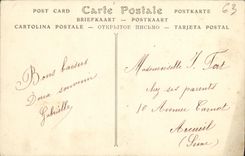 63
POST CARD Carte Postale POSTKARTE
BRIEFKAART — POSTKAART
CARTOLINA POSTALE — ОТКРЫТОЕ ПИСЬМО — TARJETA POSTAL
Bons baisers
Doux souvenir
Gabrielle
Mademoiselle J. Fort
chez ses parents
10 Avenue Carnot
Arcueil
(Seine)